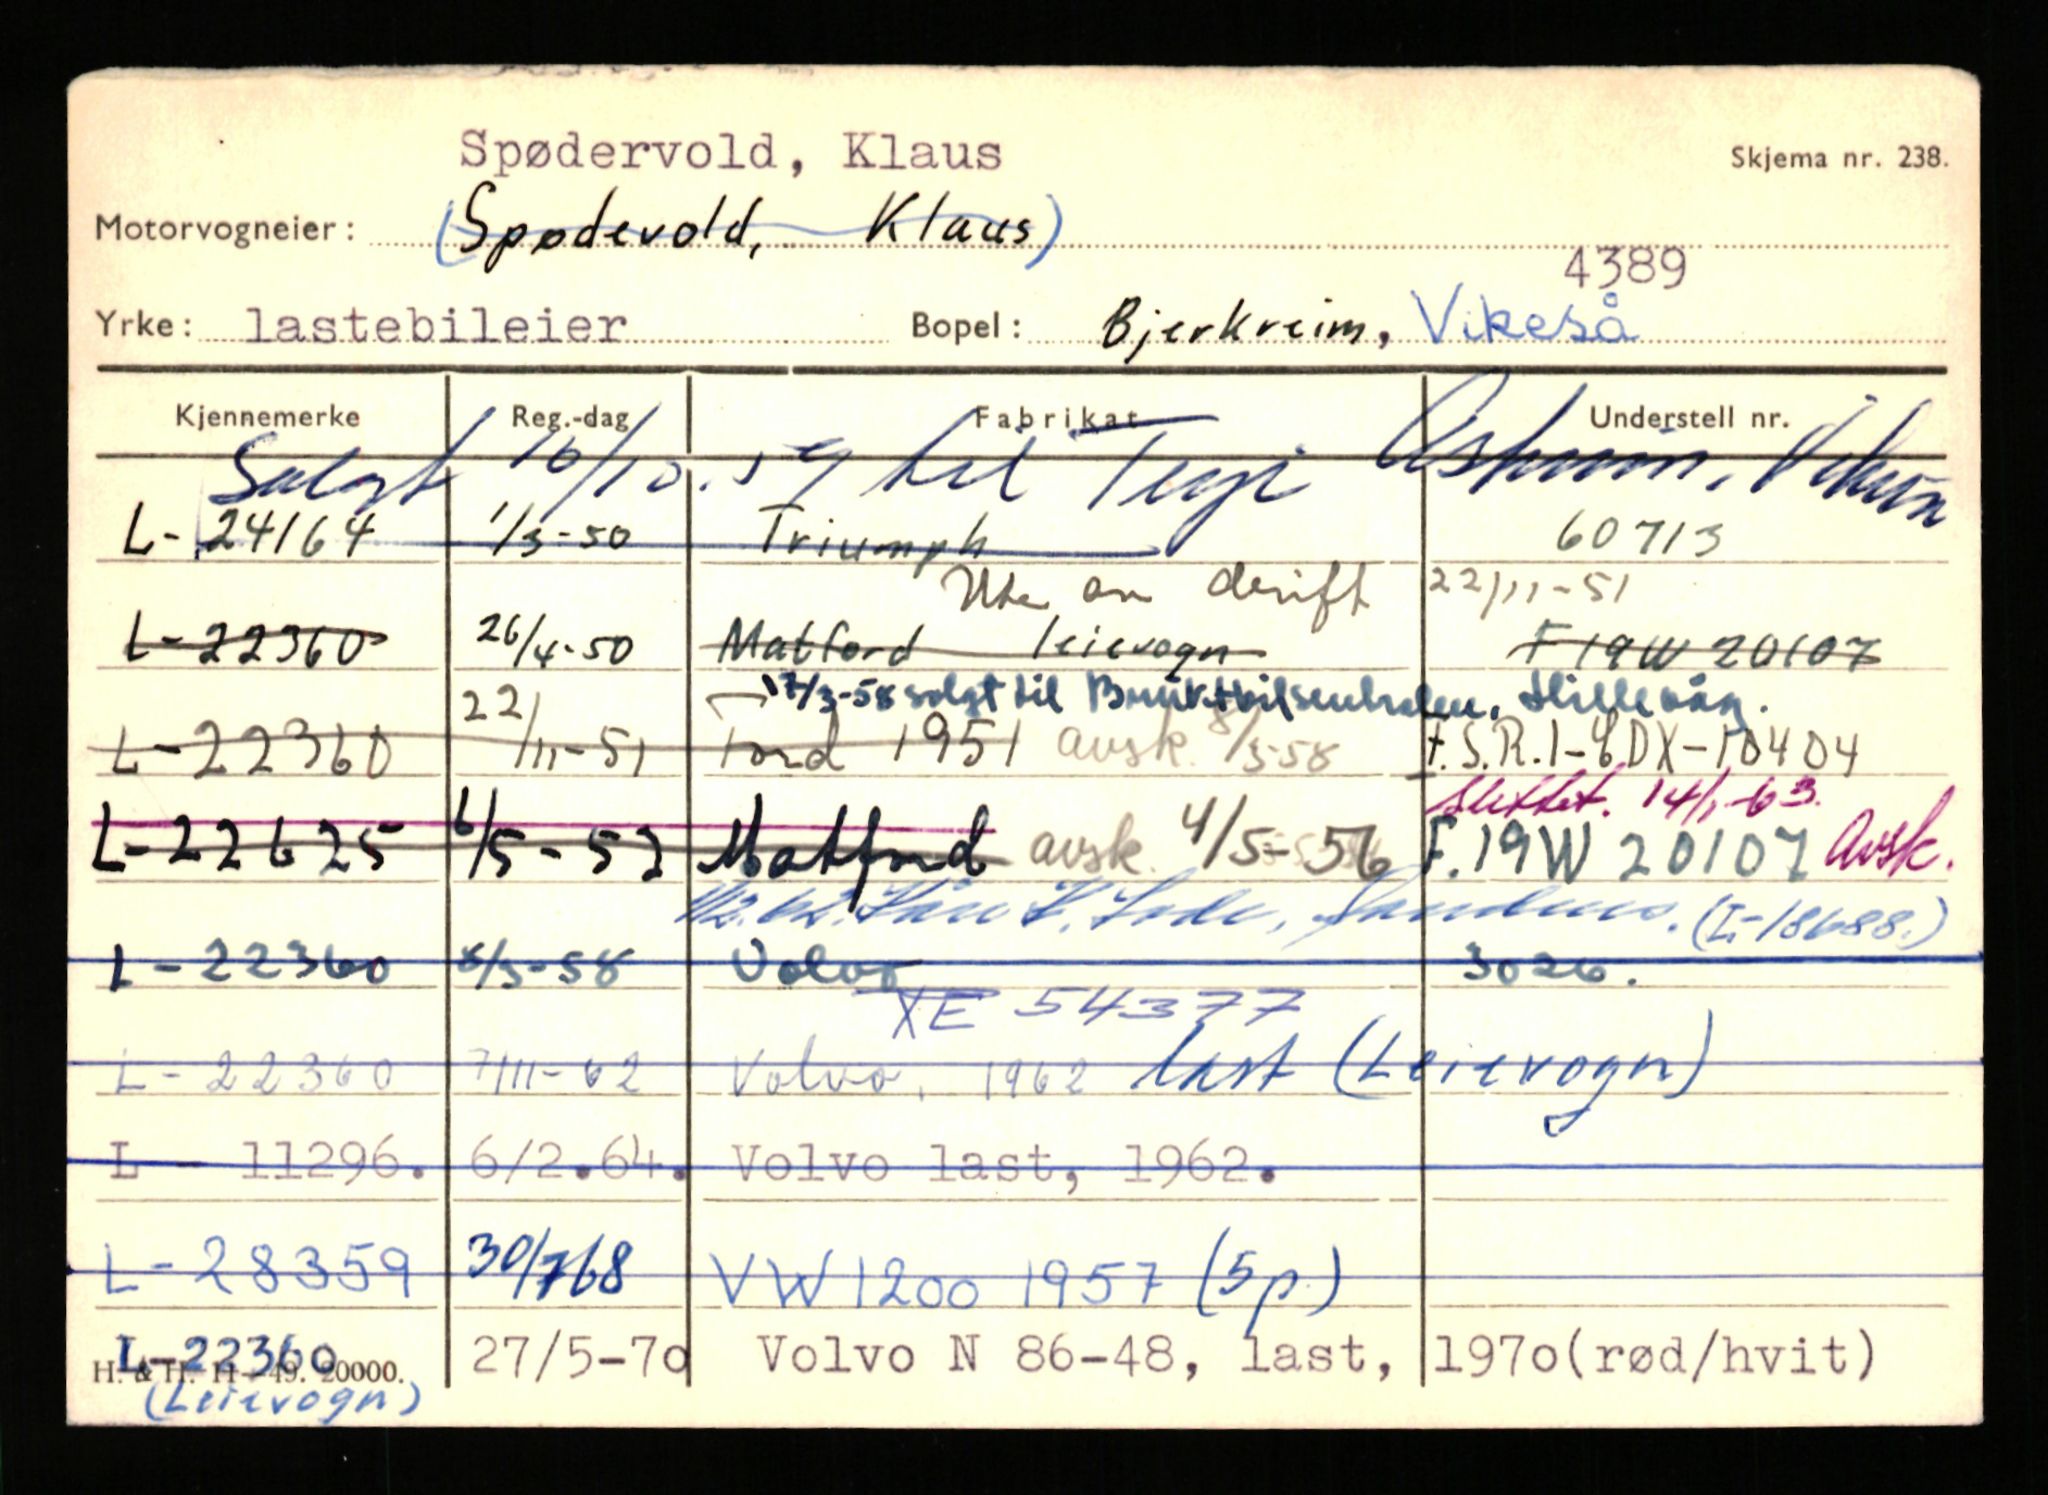 Spødervold, Klaus
Skjema nr. 238.
Motorvogneier: (Spødevold, Klaus)
4389
Yrke: lastebileier Bopel: Bjerkreim, Vikeså
Kjennemerke Reg.-dag Fabrikat Understell nr.
Solgt 16/10.59 til Terje
L-24164 1/3-50 Triumph 60713
Ute av drift 22/11-51
L-22360 26/4-50 Matford leievogn F 19W 20107
17/3-58 solgt til Bruktbilsentralen, Hillevåg.
L-22360 22/11-51 Ford 1951 avsk. 8/3-58 F.S.R.1-EDX-10404
slettet. 14/1-63.
L-22625 6/5-52 Matford avsk. 4/5-56 F.19W 20107 Avsk.
Sandnes. (L-18688.)
L-22360 8/3-58 Volvo 3026.
XE 54377
L-22360 7/11-62 Volvo, 1962 last (Leievogn)
L - 11296. 6/2.64. Volvo last, 1962.
L-28359 30/768 VW 1200 1957 (5p.)
L-22360 27/5-70 Volvo N 86-48, last, 1970(rød/hvit)
H. & TH. H - 49. 20000.
(Leievogn)